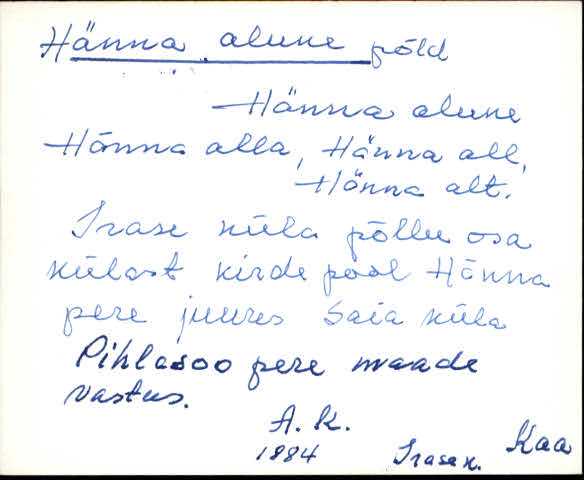 Hänna alune põld
Hänna alune
Hänna alla, Hänna all,
Hänna alt.
Irase küla põllu osa
külast kirde pool Hänna
pere juures Saia küla
Pihlasoo pere maade
vastus.
A. K.
1984 Irase k. Kaa